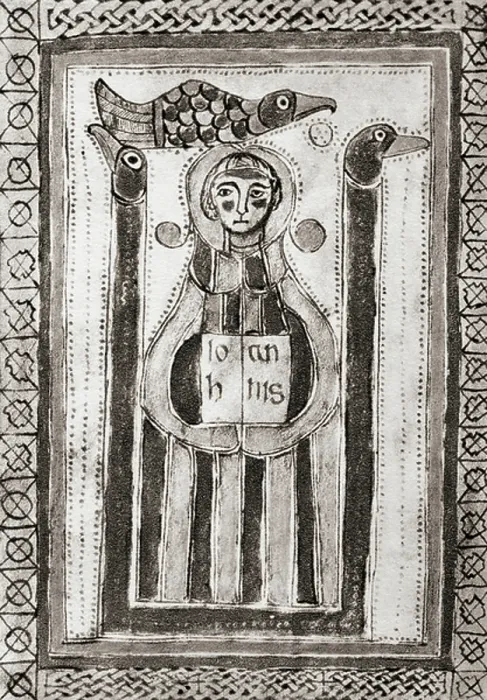 Io an
h nis